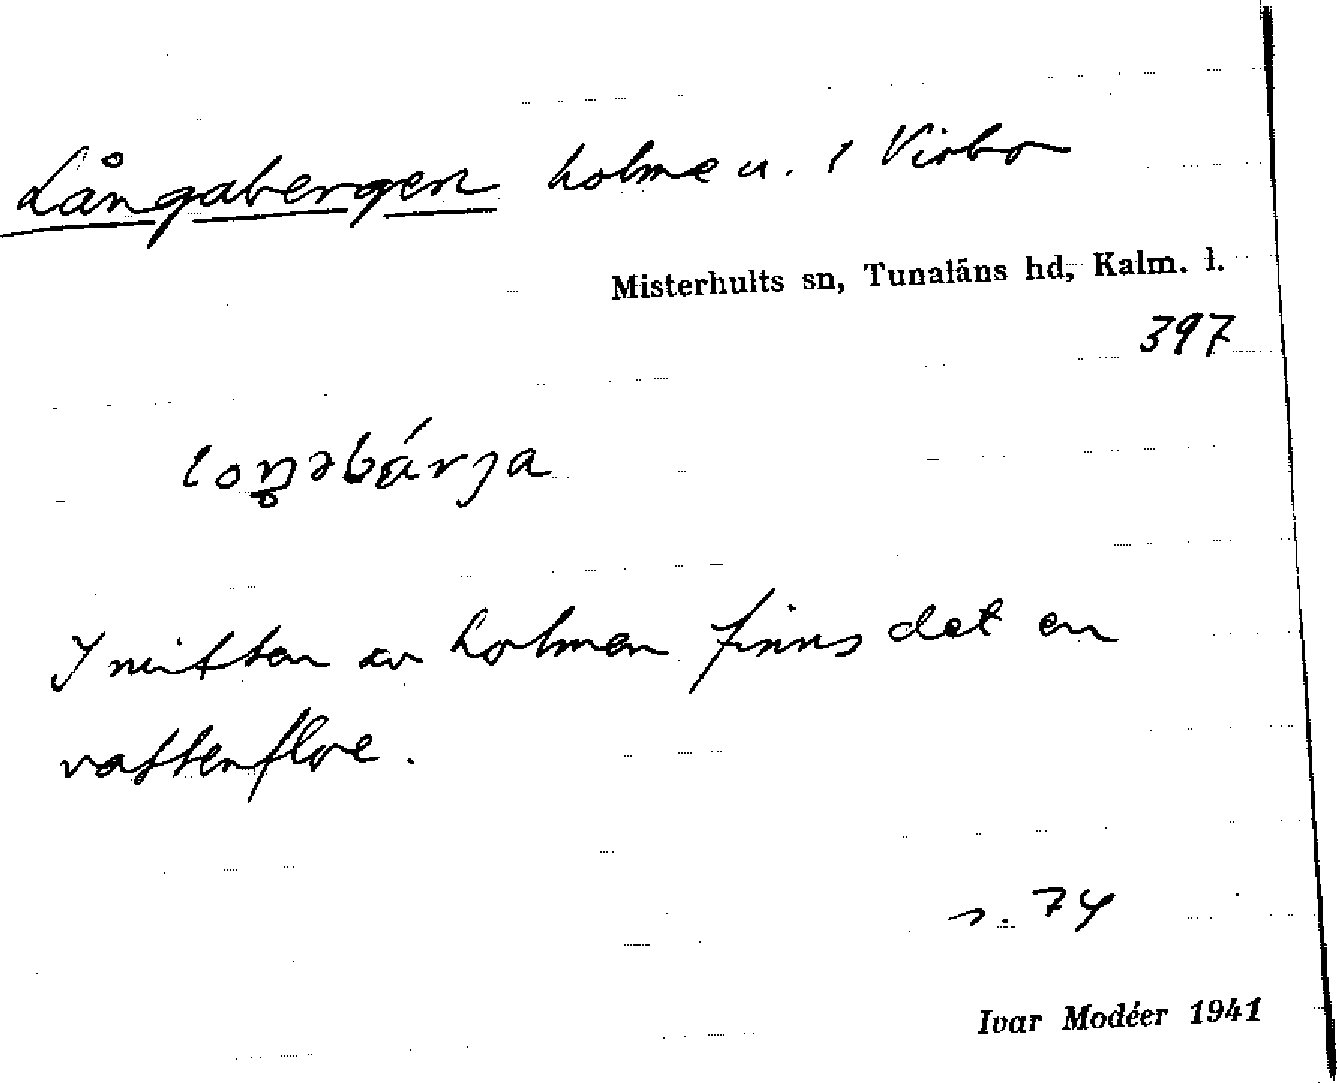 Långabergen holme u. 1 Virbo
Misterhults sn, Tunaläns hd, Kalm. l.
397
loŋ̥əbǽrja
I mitten av holmen finns det en
vattenflore.
s. 74
Ivar Modéer 1941